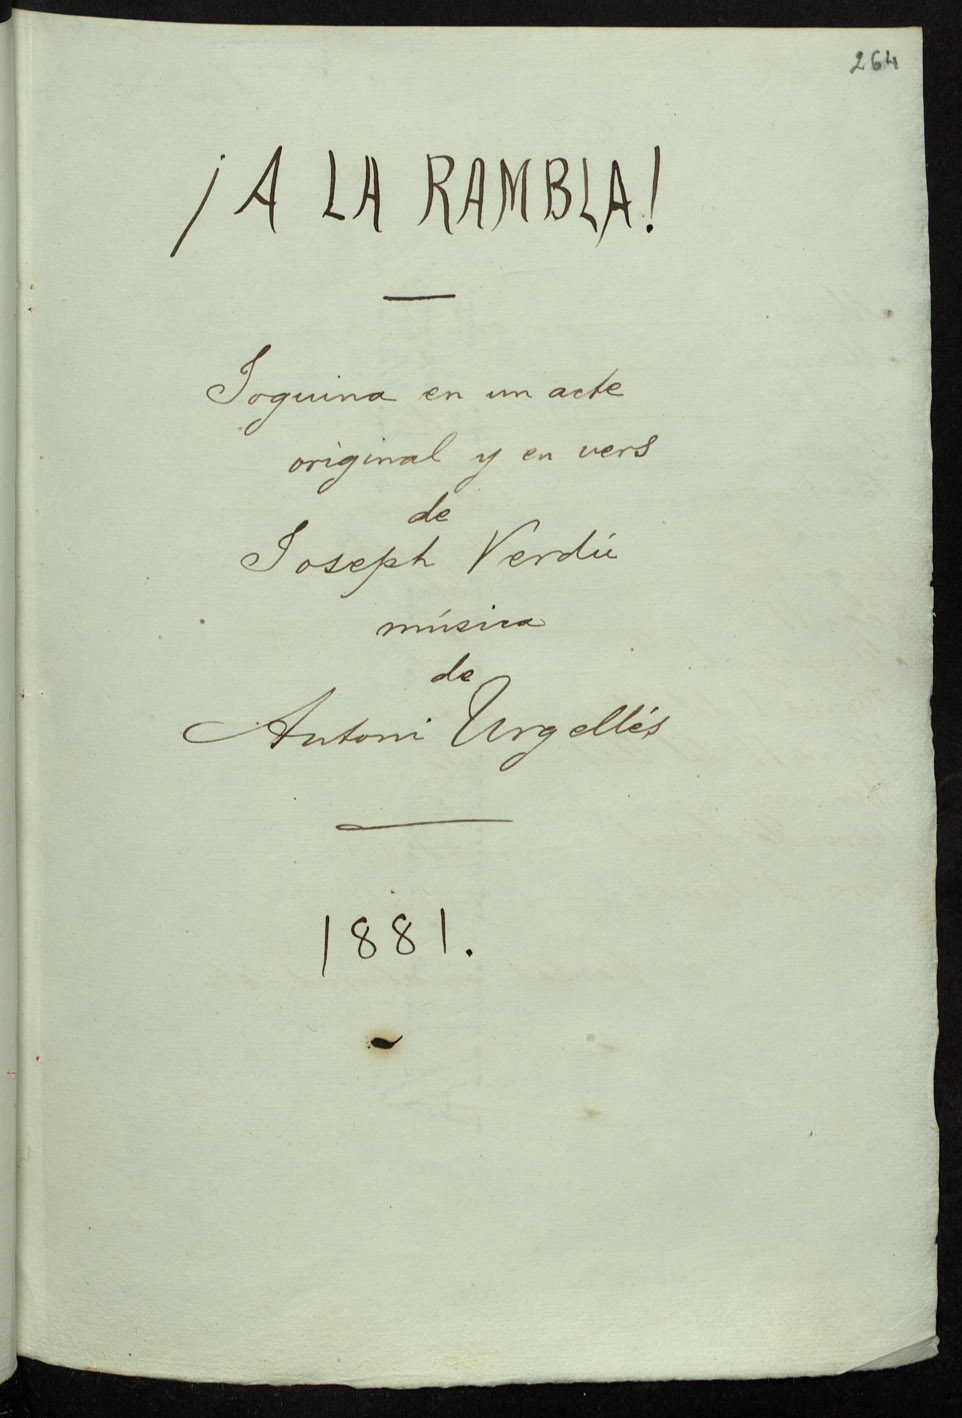 264
¡A LA RAMBLA!
Joguina en un acte
original y en vers
de
Joseph Verdú
música
de
Antoni Urgellés
1881.